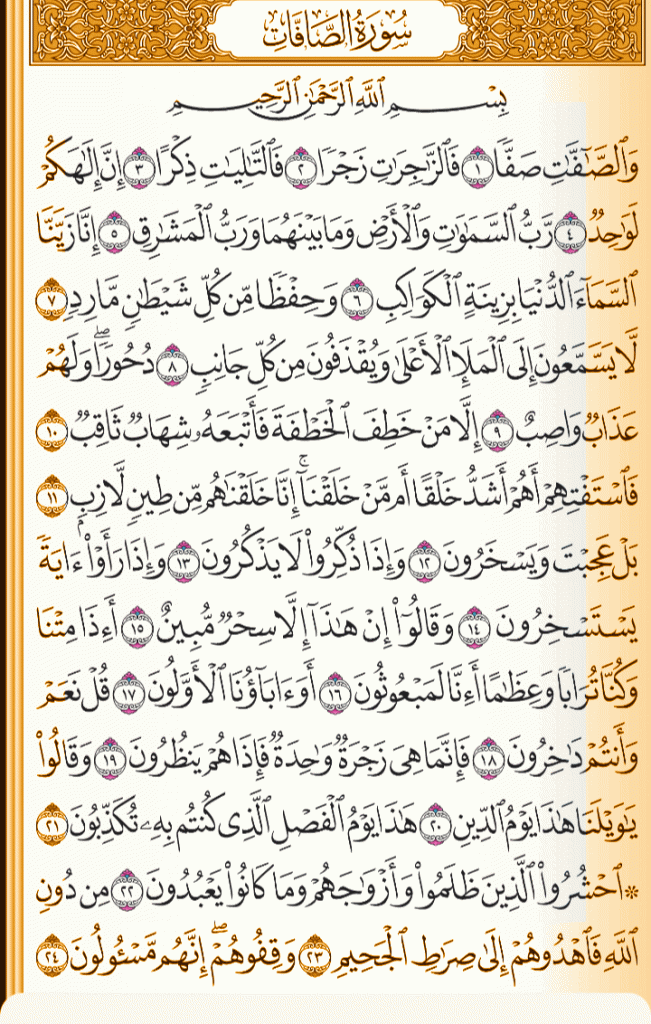 سُورَةُ الصَّافَّاتِ
بِسْمِ ٱللَّهِ ٱلرَّحْمَٰنِ ٱلرَّحِيمِ
وَٱلصَّٰٓفَّٰتِ صَفًّا ١ فَٱلزَّٰجِرَٰتِ زَجْرًا ٢ فَٱلتَّٰلِيَٰتِ ذِكْرًا ٣ إِنَّ إِلَٰهَكُمْ
لَوَٰحِدٌ ٤ رَّبُّ ٱلسَّمَٰوَٰتِ وَٱلْأَرْضِ وَمَا بَيْنَهُمَا وَرَبُّ ٱلْمَشَٰرِقِ ٥ إِنَّا زَيَّنَّا
ٱلسَّمَآءَ ٱلدُّنْيَا بِزِينَةٍ ٱلْكَوَاكِبِ ٦ وَحِفْظًا مِّن كُلِّ شَيْطَٰنٍ مَّارِدٍ ٧
لَّا يَسَّمَّعُونَ إِلَى ٱلْمَلَإِ ٱلْأَعْلَىٰ وَيُقْذَفُونَ مِن كُلِّ جَانِبٍ ٨ دُحُورًا ۖ وَلَهُمْ
عَذَابٌ وَاصِبٌ ٩ إِلَّا مَنْ خَطِفَ ٱلْخَطْفَةَ فَأَتْبَعَهُۥ شِهَابٌ ثَاقِبٌ ١٠
فَٱسْتَفْتِهِمْ أَهُمْ أَشَدُّ خَلْقًا أَم مَّنْ خَلَقْنَآ ۚ إِنَّا خَلَقْنَٰهُم مِّن طِينٍ لَّازِبٍۭ ١١
بَلْ عَجِبْتَ وَيَسْخَرُونَ ١٢ وَإِذَا ذُكِّرُوا۟ لَا يَذْكُرُونَ ١٣ وَإِذَا رَأَوْا۟ ءَايَةً
يَسْتَسْخِرُونَ ١٤ وَقَالُوٓا۟ إِنْ هَٰذَآ إِلَّا سِحْرٌ مُّبِينٌ ١٥ أَءِذَا مِتْنَا
وَكُنَّا تُرَابًا وَعِظَٰمًا أَءِنَّا لَمَبْعُوثُونَ ١٦ أَوَءَابَآؤُنَا ٱلْأَوَّلُونَ ١٧ قُلْ نَعَمْ
وَأَنتُمْ دَٰخِرُونَ ١٨ فَإِنَّمَا هِىَ زَجْرَةٌ وَٰحِدَةٌ فَإِذَا هُمْ يَنظُرُونَ ١٩ وَقَالُوا۟
يَٰوَيْلَنَا هَٰذَا يَوْمُ ٱلدِّينِ ٢٠ هَٰذَا يَوْمُ ٱلْفَصْلِ ٱلَّذِى كُنتُم بِهِۦ تُكَذِّبُونَ ٢١
۞ ٱحْشُرُوا۟ ٱلَّذِينَ ظَلَمُوا۟ وَأَزْوَٰجَهُمْ وَمَا كَانُوا۟ يَعْبُدُونَ ٢٢ مِن دُونِ
ٱللَّهِ فَٱهْدُوهُمْ إِلَىٰ صِرَٰطِ ٱلْجَحِيمِ ٢٣ وَقِفُوهُمْ ۖ إِنَّهُم مَّسْـُٔولُونَ ٢٤